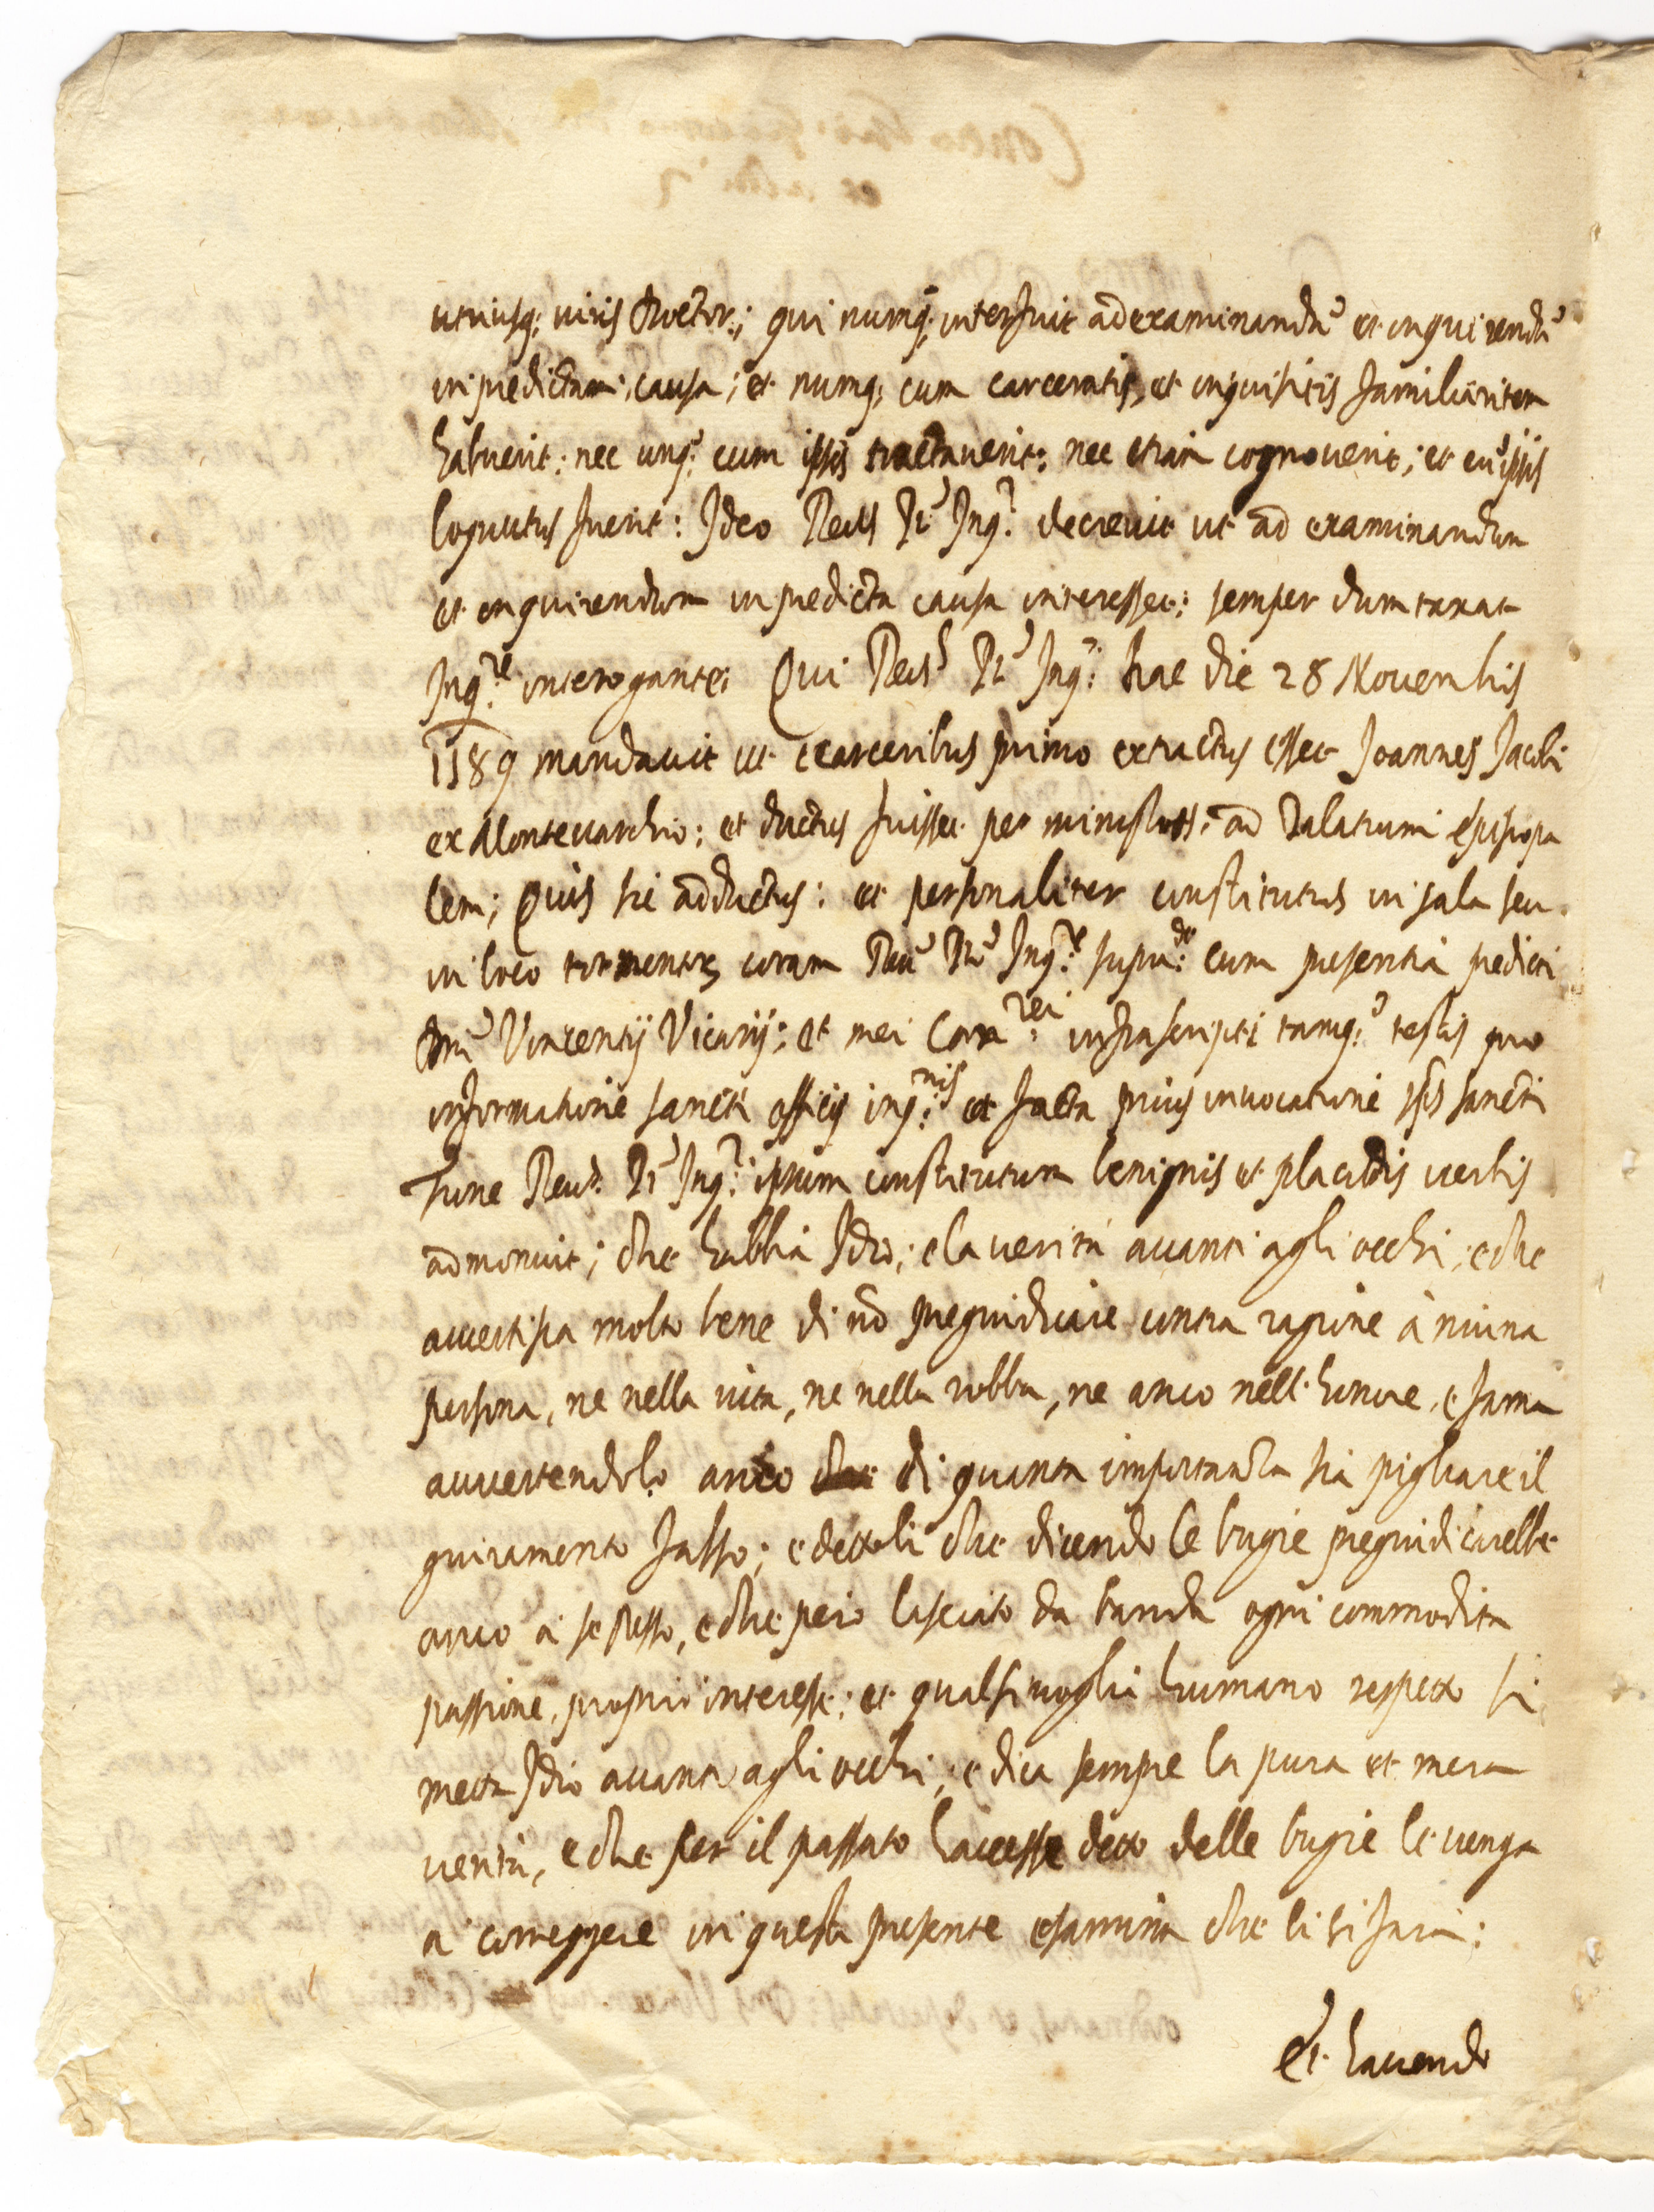 utriusq; iuris Doctor:; qui numq; interfuit ad examinandũ et inquirendũ
in predictam causa; et numq; cum carceratis, et inquisitis familiaritem
habuerit: nec unq; cum ipsis tractaverit: nec etiam cognoverit; et cũ ipsis
loquutus fuerit: Ideo Revs Pr Inqr decrevit ut ad examinandum
et inquirendum in predicta causa interesset: semper dumtaxat
Inqre interogante: Qui Revs Pr Inqr hac die 28 Novembris
1589 mandavit ut ex carceribus primo extractus esset Joannes Jacobi
ex Montevarchio: et ductus fuisset per ministros ad Palatium episcopa
lem; Quis sic adductus: et personaliter constitutus in sala seu
in loco tormentor coram Revo Pre Inqre suprado cum presentia predicti
Dni Vincentij Vicarij: et mei Canrei infrascripti tamq; testis pro
informatione sancti officij inqnis et facta prius invocatione sps sancti
Tunc Revs Pr Inqr ipsum constitutum benignis et placidis verbis
admonuit; che habbia Idio; e la verità avanti agli occhi; e che
avvertisca molto bene di nõ pregiudicare contra ragione à niuna
persona, ne nella vita, ne nella robba, ne anco nell' honore, e fama
avvertendolo anco di quanta importanza sia pigliare il
giuramento falso; e dettoli che dicendo le bugie pregiudicarebbe
anco à se stesso, e che però lasciato da banda ogni commodita
passione, proprio interesse; et qualsivoglia humano respetto si
metta Idio avanti agli occhi; e dica sempre la pura et mera
verità, e che per il passato havesse detto delle bugie le venga
à correggere in questa presente esamina che li si farà:
Et havendo